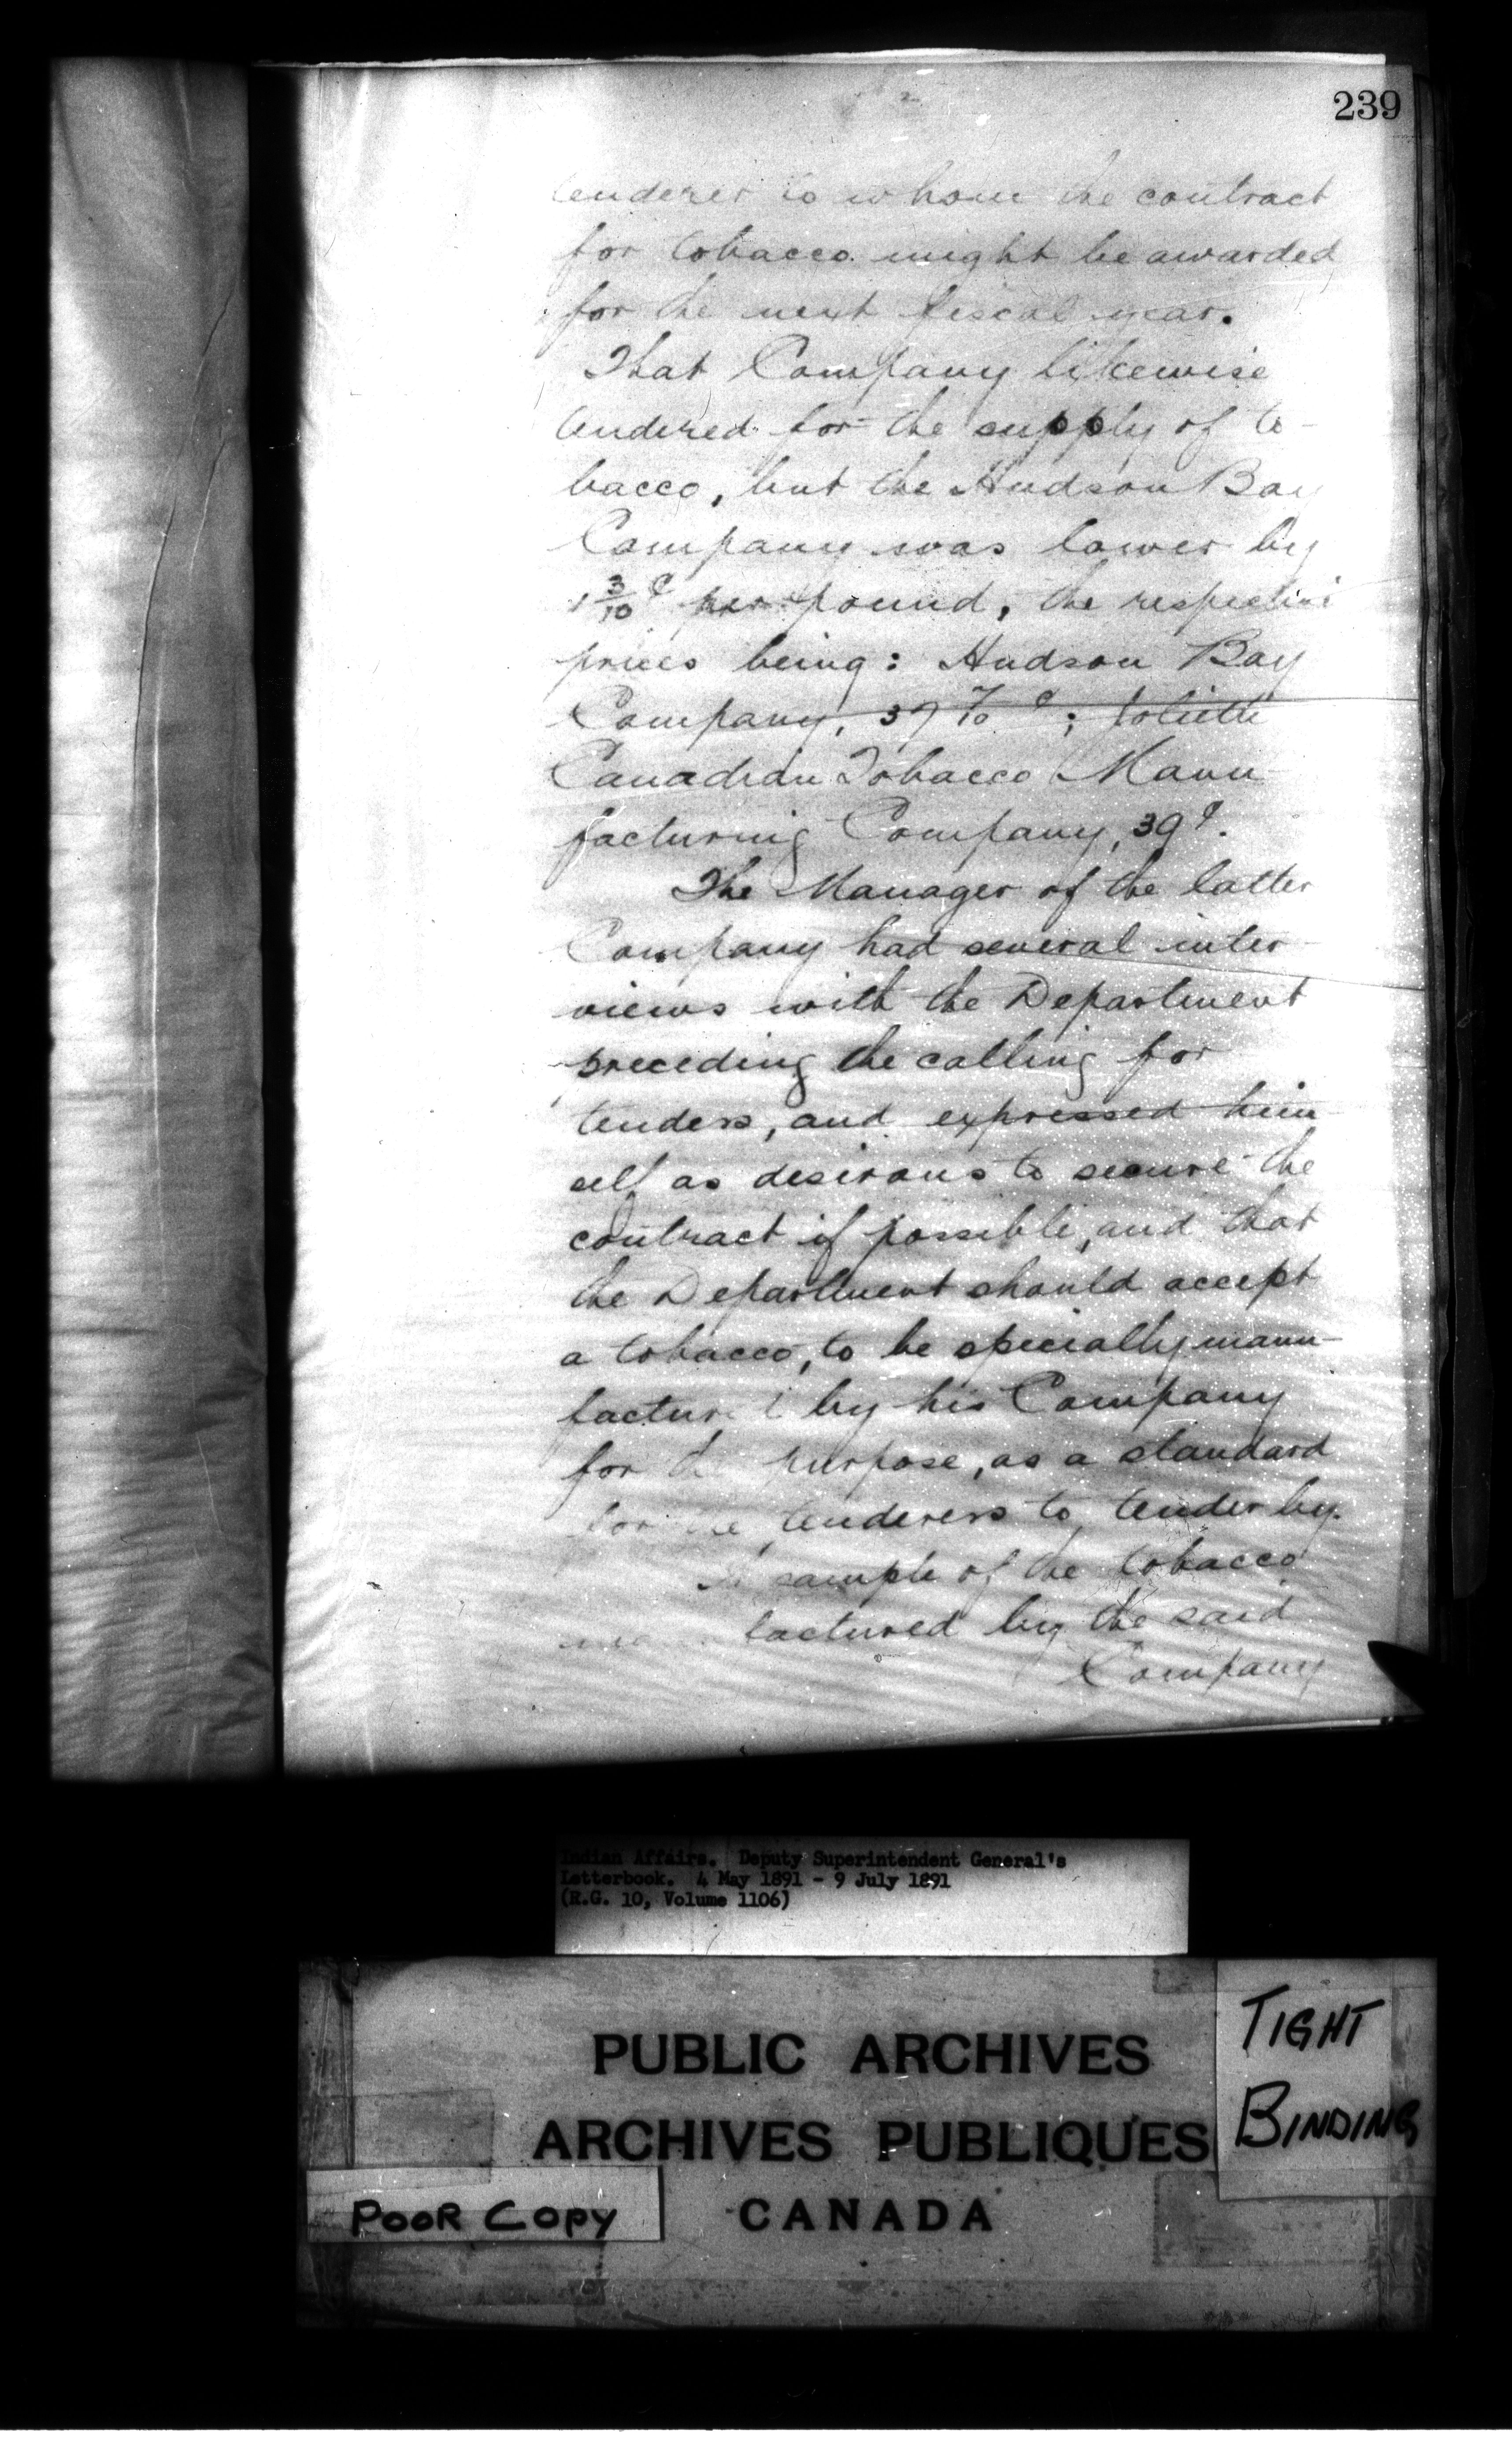 239
tenderer to whom the contract
for tobacco might be awarded
for the next fiscal year.
That Company likewise
tendered for the supply of to-
bacco, but the Hudson Bay
Company was lower by
1 3/10 ¢ per pound, the respective
prices being: Hudson Bay
Company, 37 7/10 ¢; Joliette
Canadian Tobacco Manu-
facturing Company, 39 ¢.
The Manager of the latter
Company had several inter-
views with the Department
preceding the calling for
tenders, and expressed him-
self as desirous to secure the
contract if possible, and that
the Department should accept
a tobacco, to be specially manu-
factured by his Company
for the purpose, as a standard
for the tenderers to tender by.
A sample of the tobacco
factured by the said
Company
Indian Affairs. Deputy Superintendent General's
Letterbook. 4 May 1891 - 9 July 1891
(R.G. 10, Volume 1106)
PUBLIC ARCHIVES
ARCHIVES PUBLIQUES
CANADA
TIGHT
BINDING
POOR COPY